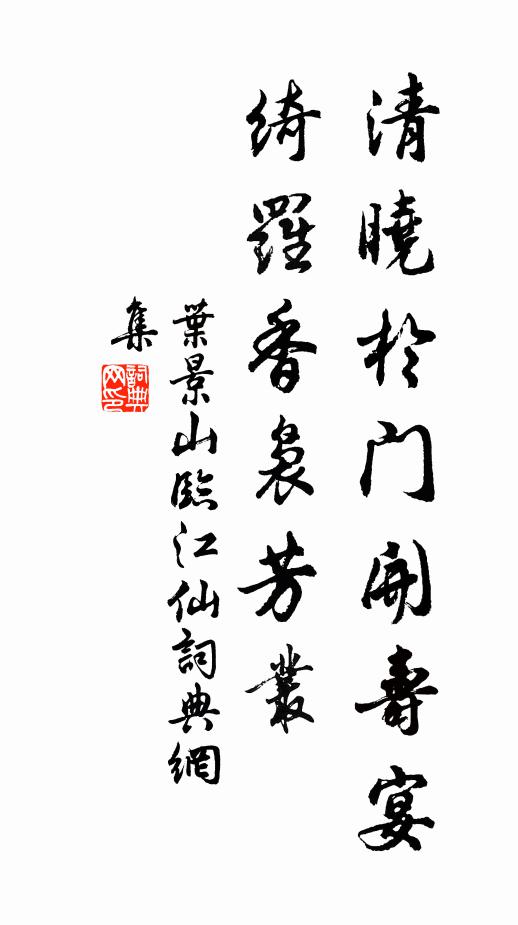 清曉於門開壽宴
綺羅香裊芳叢
葉景山臨江仙詞典網
集
詞典
网印